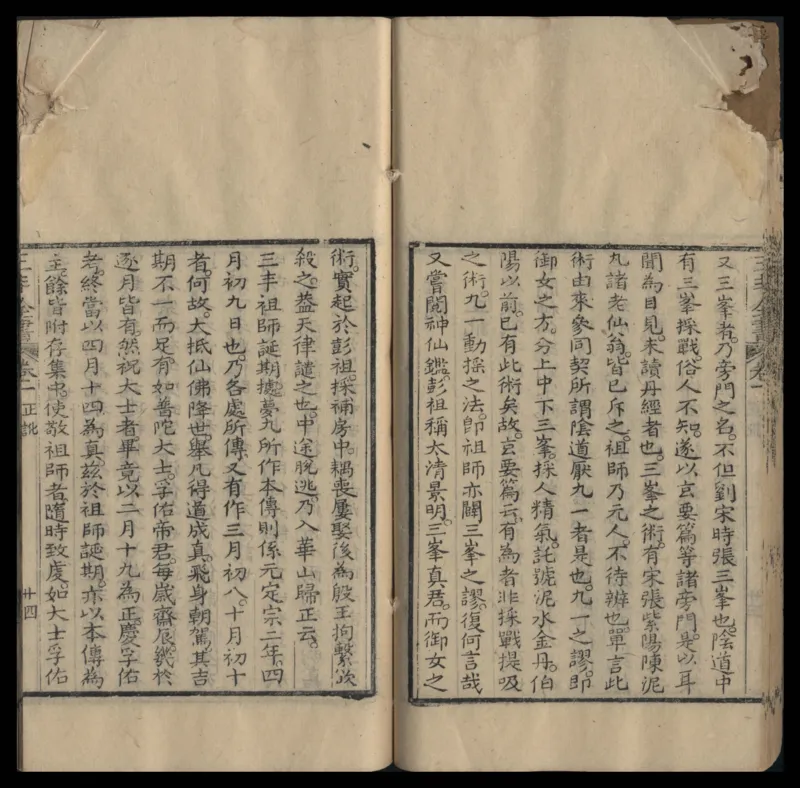 又三峯者。乃旁門之名。不但劉宋時張三峯也。陰道中
有三峯採戰。俗人不知。遂以玄要篇等諸旁門。是以耳
聞為目見。未讀丹經者也。三峯之術。有宋張紫陽陳泥
九諸老仙翁。皆已斥之。祖師乃元人。不待辨也。單言此
術由來。參同契所謂陰道厭九一者是也。九一之謬。即
御女之方。分上中下三峯。採人精氣。託號泥水金丹。伯
陽以前。已有此術矣。故玄要篇云。有為者非採戰提吸
之術。九一動搖之法。即祖師亦闢三峯之謬。復何言哉
又嘗閱神仙鑑。彭祖稱太清景明三峯真君。而御女之
術。實起於彭祖。採補房中。耦喪屢娶。後為殷王拘繫。欲
殺之。蓋天律譴之也。中途脫逃。乃入華山歸正云。
三丰祖師誕期。據夢九所作本傳。則係元定宗二年。四
月初九日也。乃各處所傳。又有作三月初八。十月初十
者。何故。大抵仙佛降世。舉凡得道成真。飛身朝駕。其吉
期不一而足。有如普陀大士。孚佑帝君。每歲齋辰。幾於
逐月皆有。然祝大士者。畢竟以二月十九為正。慶孚佑
者。終當以四月十四為真。茲於祖師誕期。亦以本傳為
主。餘皆附存集中。使敬祖師者。隨時致虔。如大士孚佑
三丰全書 卷二 正訛 廿四